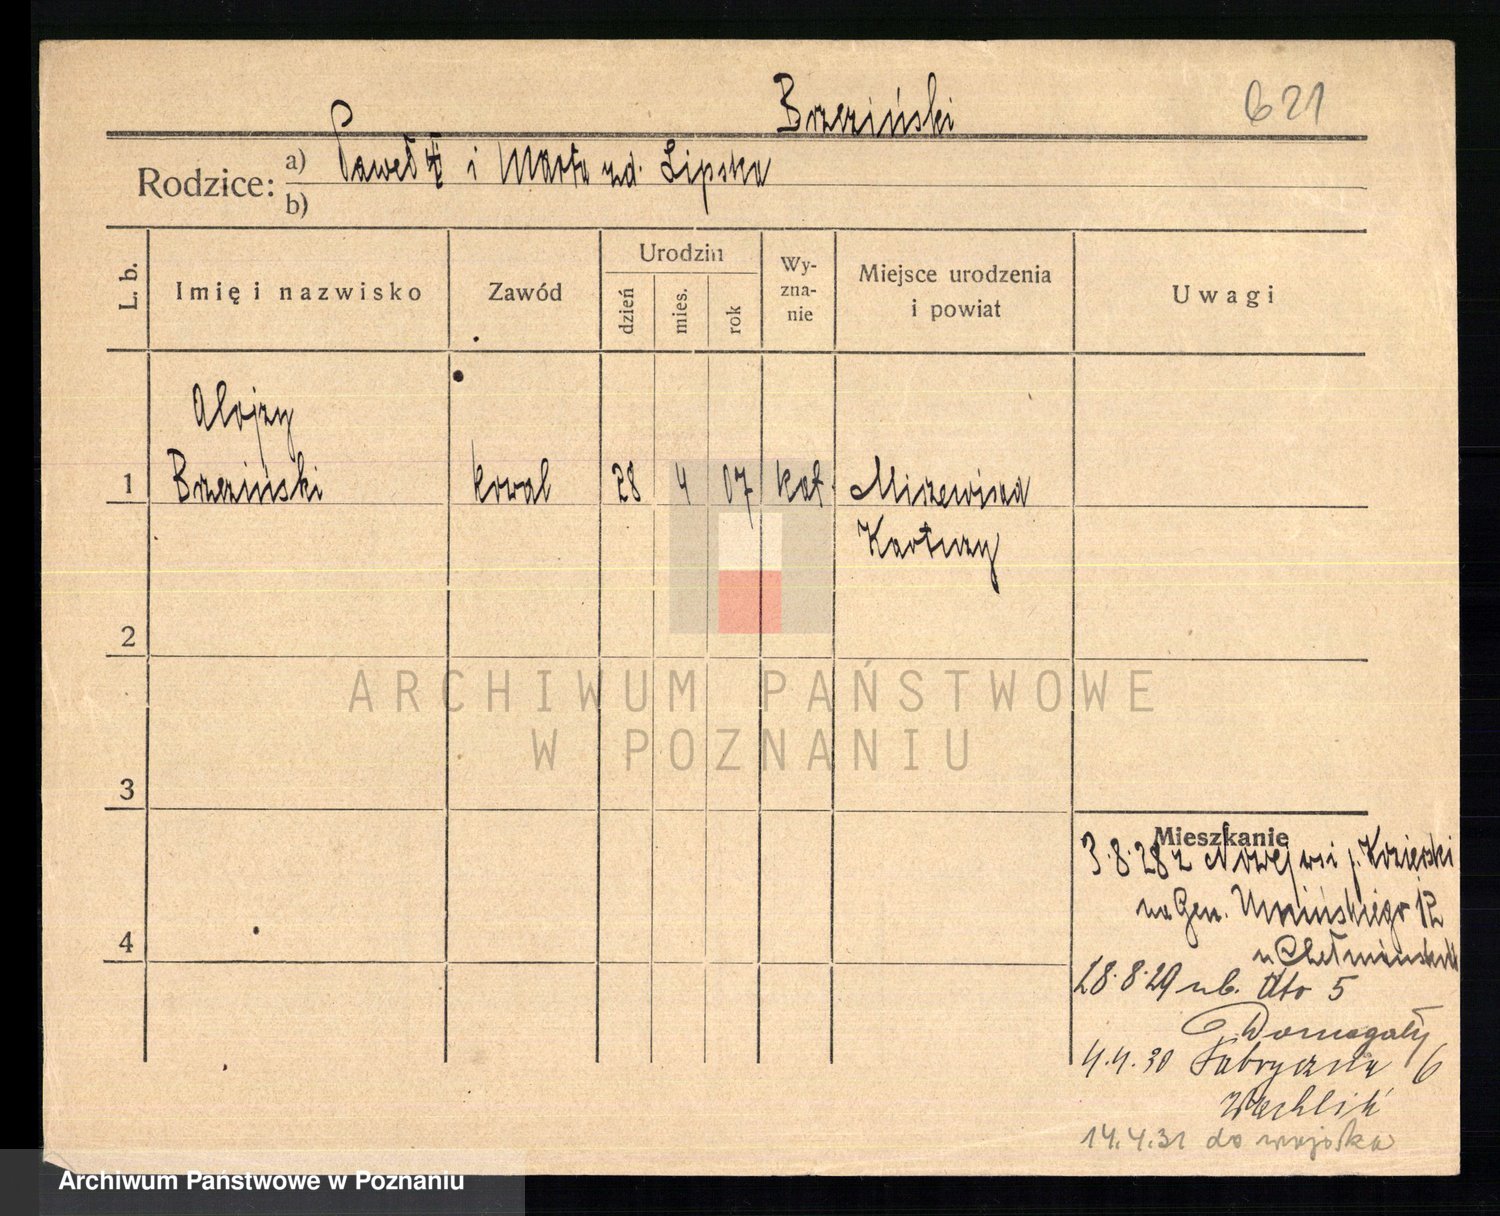 Brzeziński
621
Rodzice: a) Paweł i Marta zd. Lipska
b)
L. b.
Imię i nazwisko
Zawód
Urodzin
dzień
mies.
rok
Wy-
zna-
nie
Miejsce urodzenia
i powiat
Uwagi
Alojzy
1 Brzeziński kowal 28 4 07 kat.
Kartuzy
2
ARCHIWUM PAŃSTWOWE
W POZNANIU
3
Mieszkanie
3.8.28 z Nowej wsi p.
na Gen. Umińskiego 12
28.8.29 5
Domagały
4.4.30 Fabryczna 6
14.4.31 do wojska
4
Archiwum Państwowe w Poznaniu